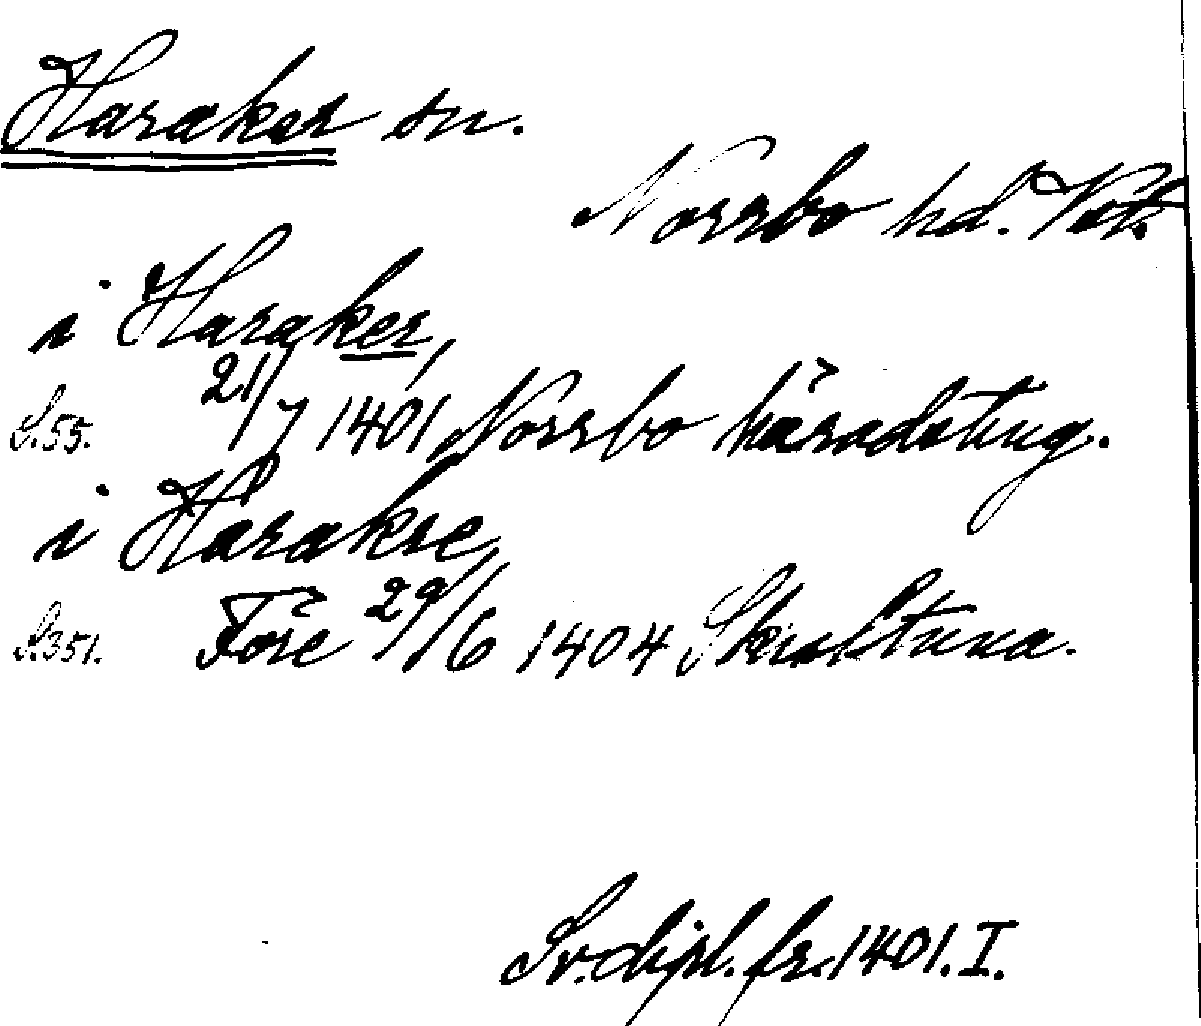 Haraker sn.
Norrbo hd. Vstm.
i Haraker,
S.55. 21/7 1401, Norrbo häradsting.
i Harakre,
S.351. Före 29/6 1404 Skultuna.
Sv. dipl. fr. 1401. I.